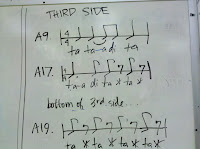 THIRD SIDE
A9
4/4
ta ta-a di ta
A17.
ta ta-a di ta * ta *
bottom of 3rd side...
A19.
ta * ta * ta * ta *